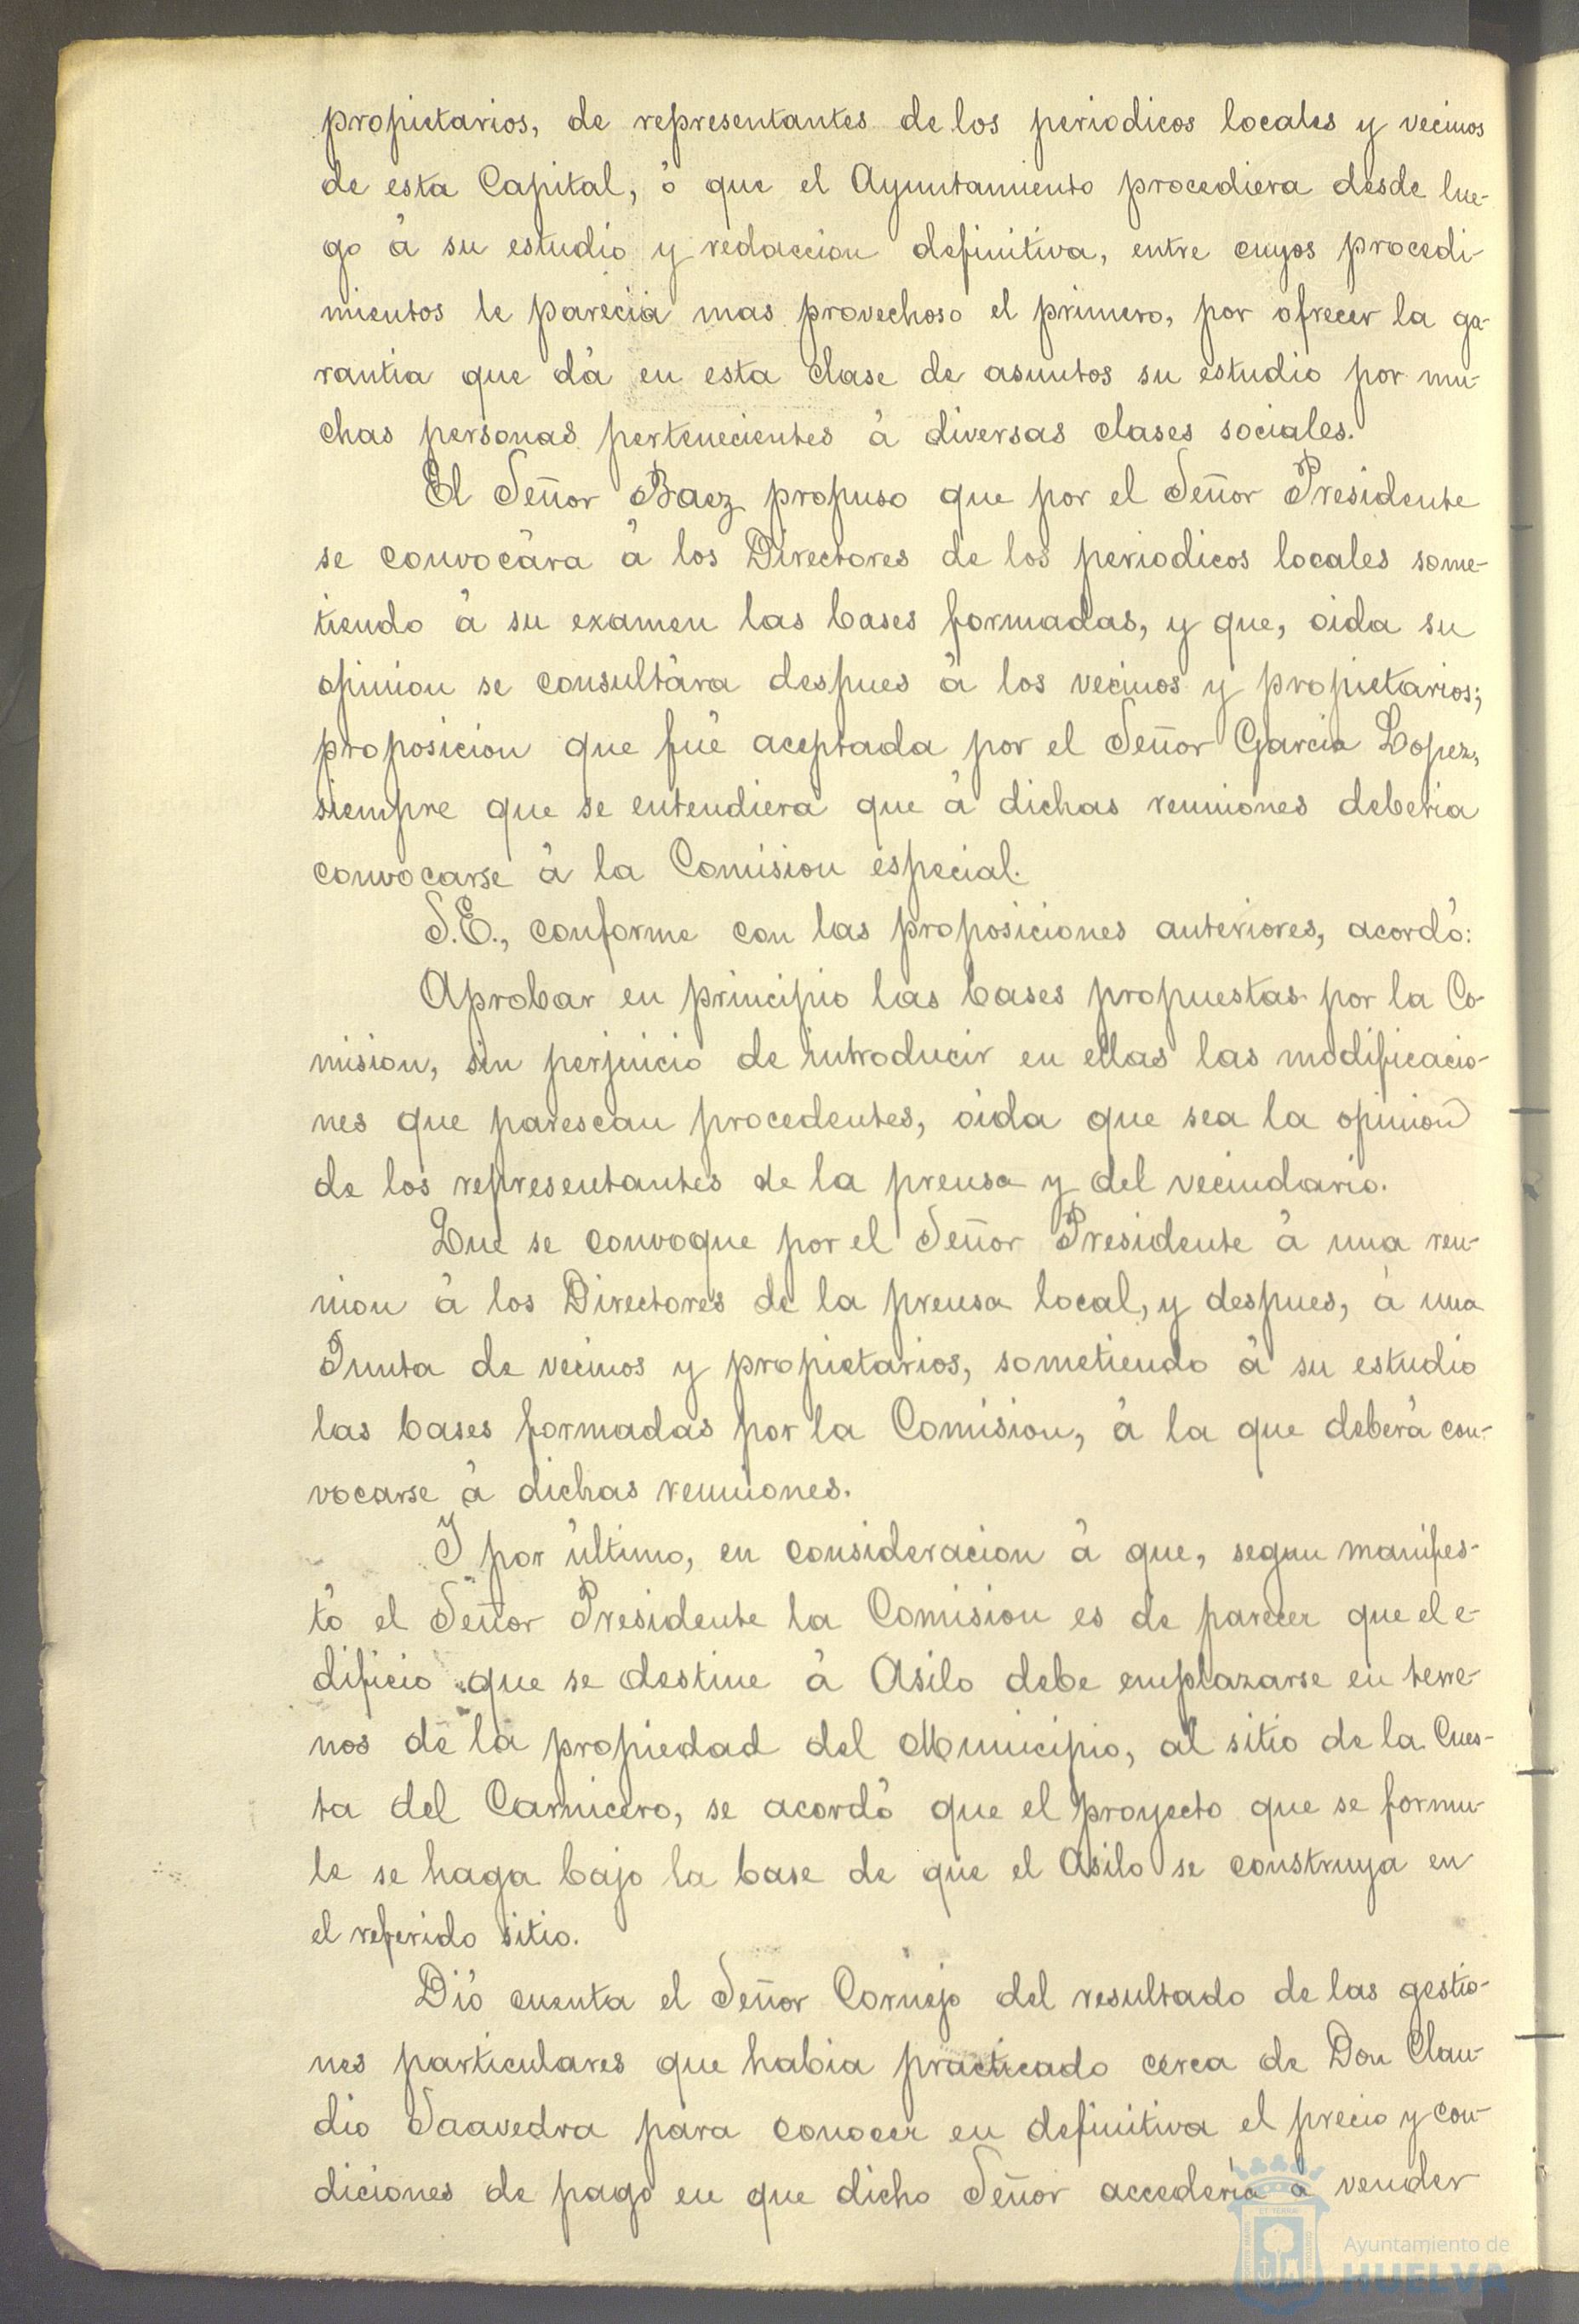 propietarios, de representantes de los periodicos locales y vecinos
de esta Capital, ó que el Ayuntamiento procediera desde lue-
go á su estudio y redaccion definitiva, entre cuyos procedi-
mientos le parecia mas provechoso el primero, por ofrecer la ga-
rantia que dá en esta clase de asuntos su estudio por mu-
chas personas pertenecientes á diversas clases sociales.
El Señor Baez propuso que por el Señor Presidente
se convocára á los Directores de los periodicos locales some-
tiendo á su examen las bases formadas, y que, oida su
opinion se consultára despues á los vecinos y propietarios;
proposicion que fué aceptada por el Señor Garcia Lopez,
siempre que se entendiera que á dichas reuniones deberia
convocarse á la Comision especial.
S.E., conforme con las proposiciones anteriores, acordó:
Aprobar en principio las bases propuestas por la Co-
mision, sin perjuicio de introducir en ellas las modificacio-
nes que parescan procedentes, oida que sea la opinion
de los representantes de la prensa y del vecindario.
Que se convoque por el Señor Presidente á una reu-
nion á los Directores de la prensa local, y despues, á una
Junta de vecinos y propietarios, sometiendo á su estudio
las bases formadas por la Comision, á la que deberá con-
vocarse á dichas reuniones.
Y por último, en consideracion á que, segun manifes-
tó el Señor Presidente la Comision es de parecer que el e-
dificio que se destine á Asilo debe emplazarse en terre-
nos de la propiedad del Municipio, al sitio de la Cues-
ta del Carnicero, se acordó que el proyecto que se formu-
le se haga bajo la base de que el Asilo se construya en
el referido sitio.
Dió cuenta el Señor Cornejo del resultado de las gestio-
nes particulares que habia practicado cerca de Don Clau-
dio Saavedra para conocer en definitiva el precio y con-
diciones de pago en que dicho Señor accederia á vender
Ayuntamiento de
HUELVA